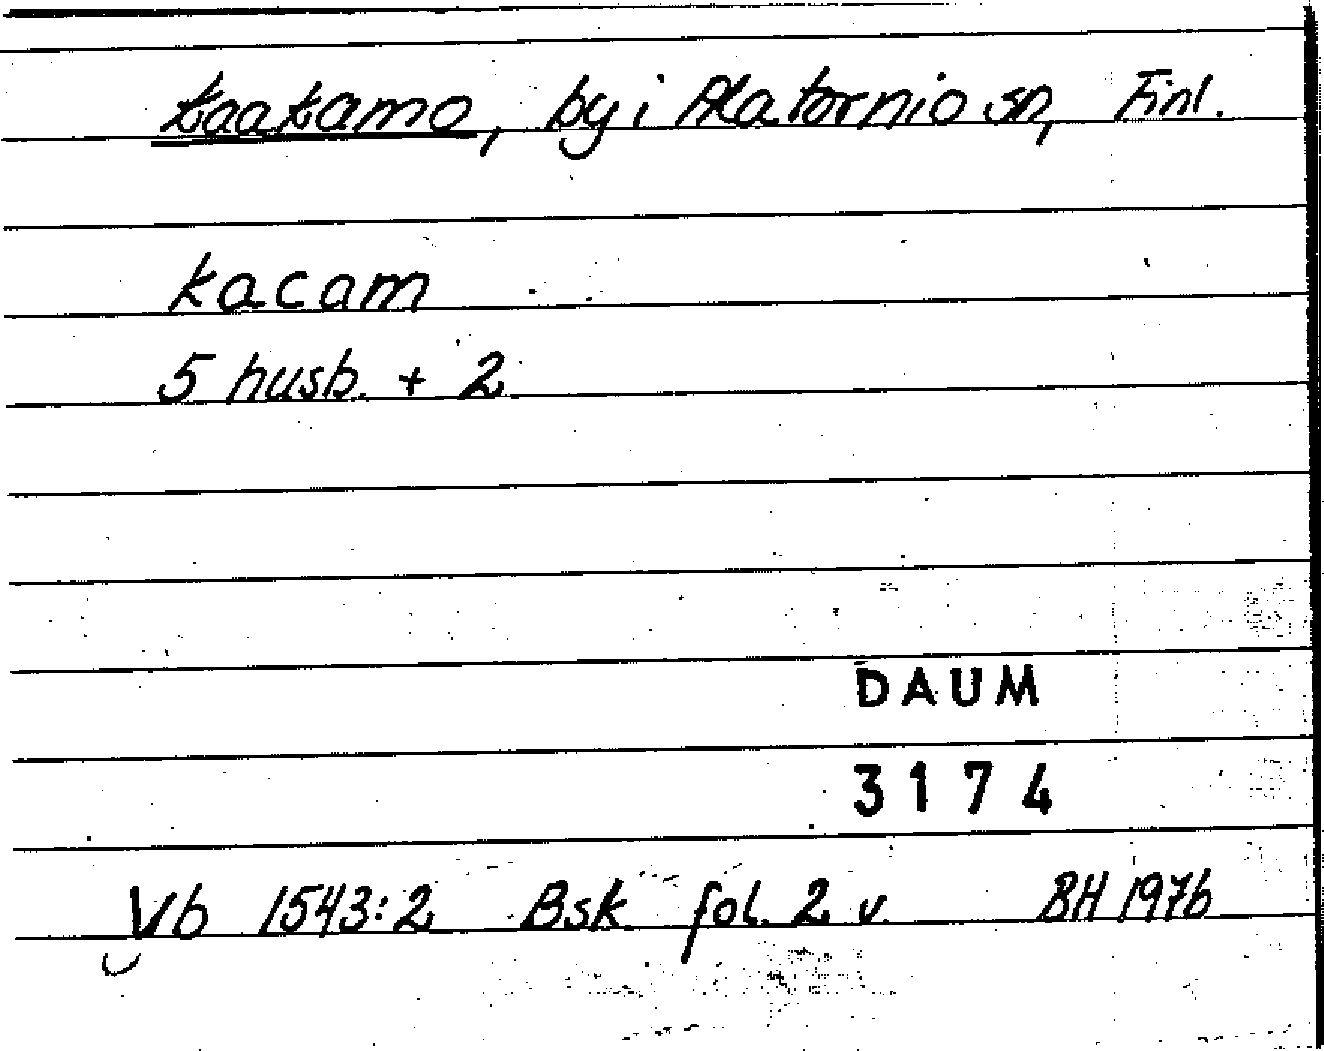 Kaakamo, by i Alatornio sn, Finl.
kacam
5 husb. + 2
DAUM
3174
Vb 1543:2 Bsk fol. 2 v. BH 1976